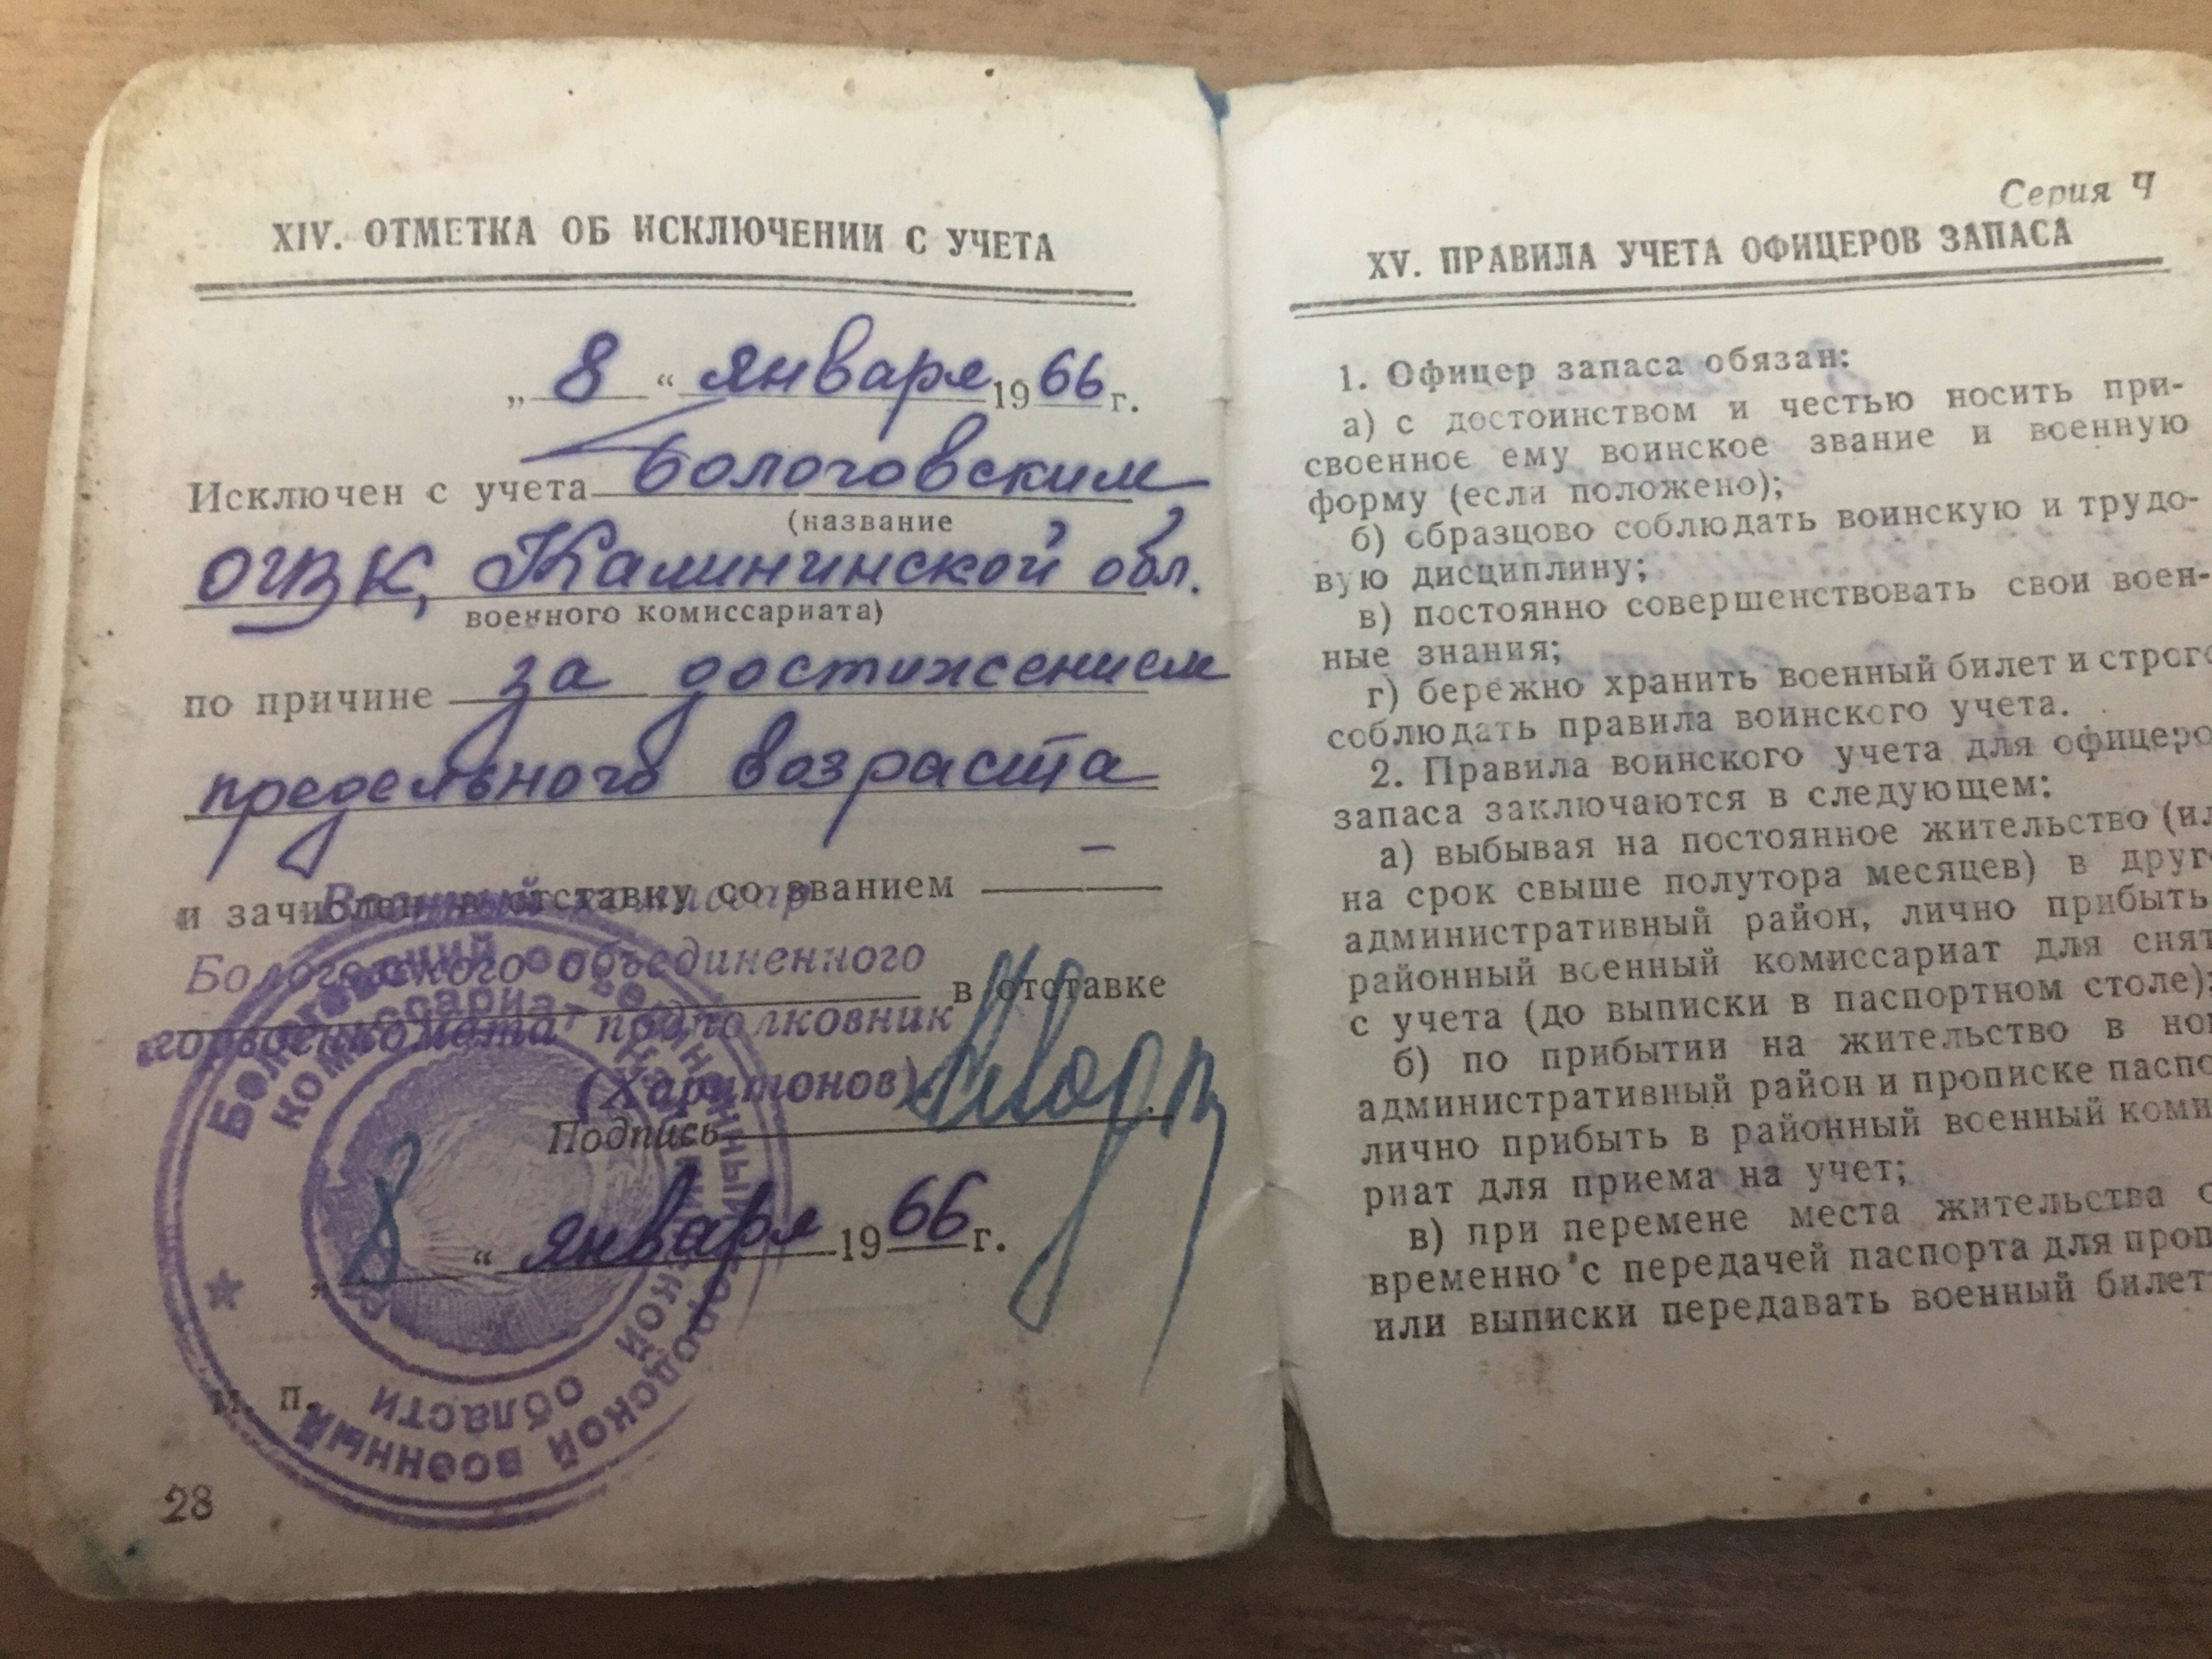 XIV. ОТМЕТКА ОБ ИСКЛЮЧЕНИИ С УЧЕТА
„ 8 “ января 1966 г.
Исключен с учета Бологовским
(название
ОГВК, Калининской обл.
военного комиссариата)
по причине за достижением
предельного возраста
и зачислен в отставку со званием —
Военный комиссар
Бологовского объединенного
в отставке
горвоенкомата подполковник
(Харитонов)
Подпись
„ 8 “ января 1966 г.
м. п.
Бологовский объединенный городской военный
комиссариат Калининской области
28
Серия Ч
XV. ПРАВИЛА УЧЕТА ОФИЦЕРОВ ЗАПАСА
1. Офицер запаса обязан:
а) с достоинством и честью носить при-
своенное ему воинское звание и военную
форму (если положено);
б) образцово соблюдать воинскую и трудо-
вую дисциплину;
в) постоянно совершенствовать свои воен-
ные знания;
г) бережно хранить военный билет и строго
соблюдать правила воинского учета.
2. Правила воинского учета для офицеро
запаса заключаются в следующем:
а) выбывая на постоянное жительство (ил
на срок свыше полутора месяцев) в друг
административный район, лично прибыть
районный военный комиссариат для снят
с учета (до выписки в паспортном столе);
б) по прибытии на жительство в но
административный район и прописке паспо
лично прибыть в районный военный коми
риат для приема на учет;
в) при перемене места жительства о
временно с передачей паспорта для проп
или выписки передавать военный билет